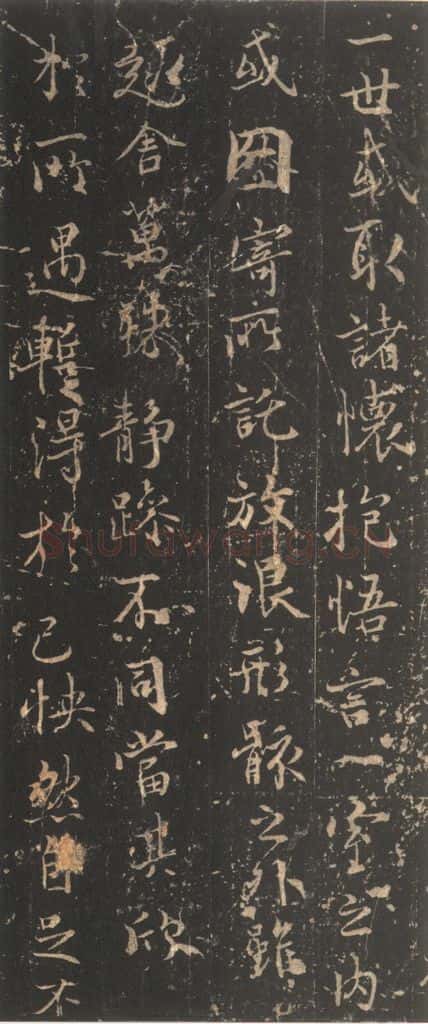 一世或取諸懷抱悟言一室之内
或因寄所託放浪形骸之外雖
趣舍萬殊静躁不同當其欣
於所遇暫得於己怏然自足不
Shufawang.CN